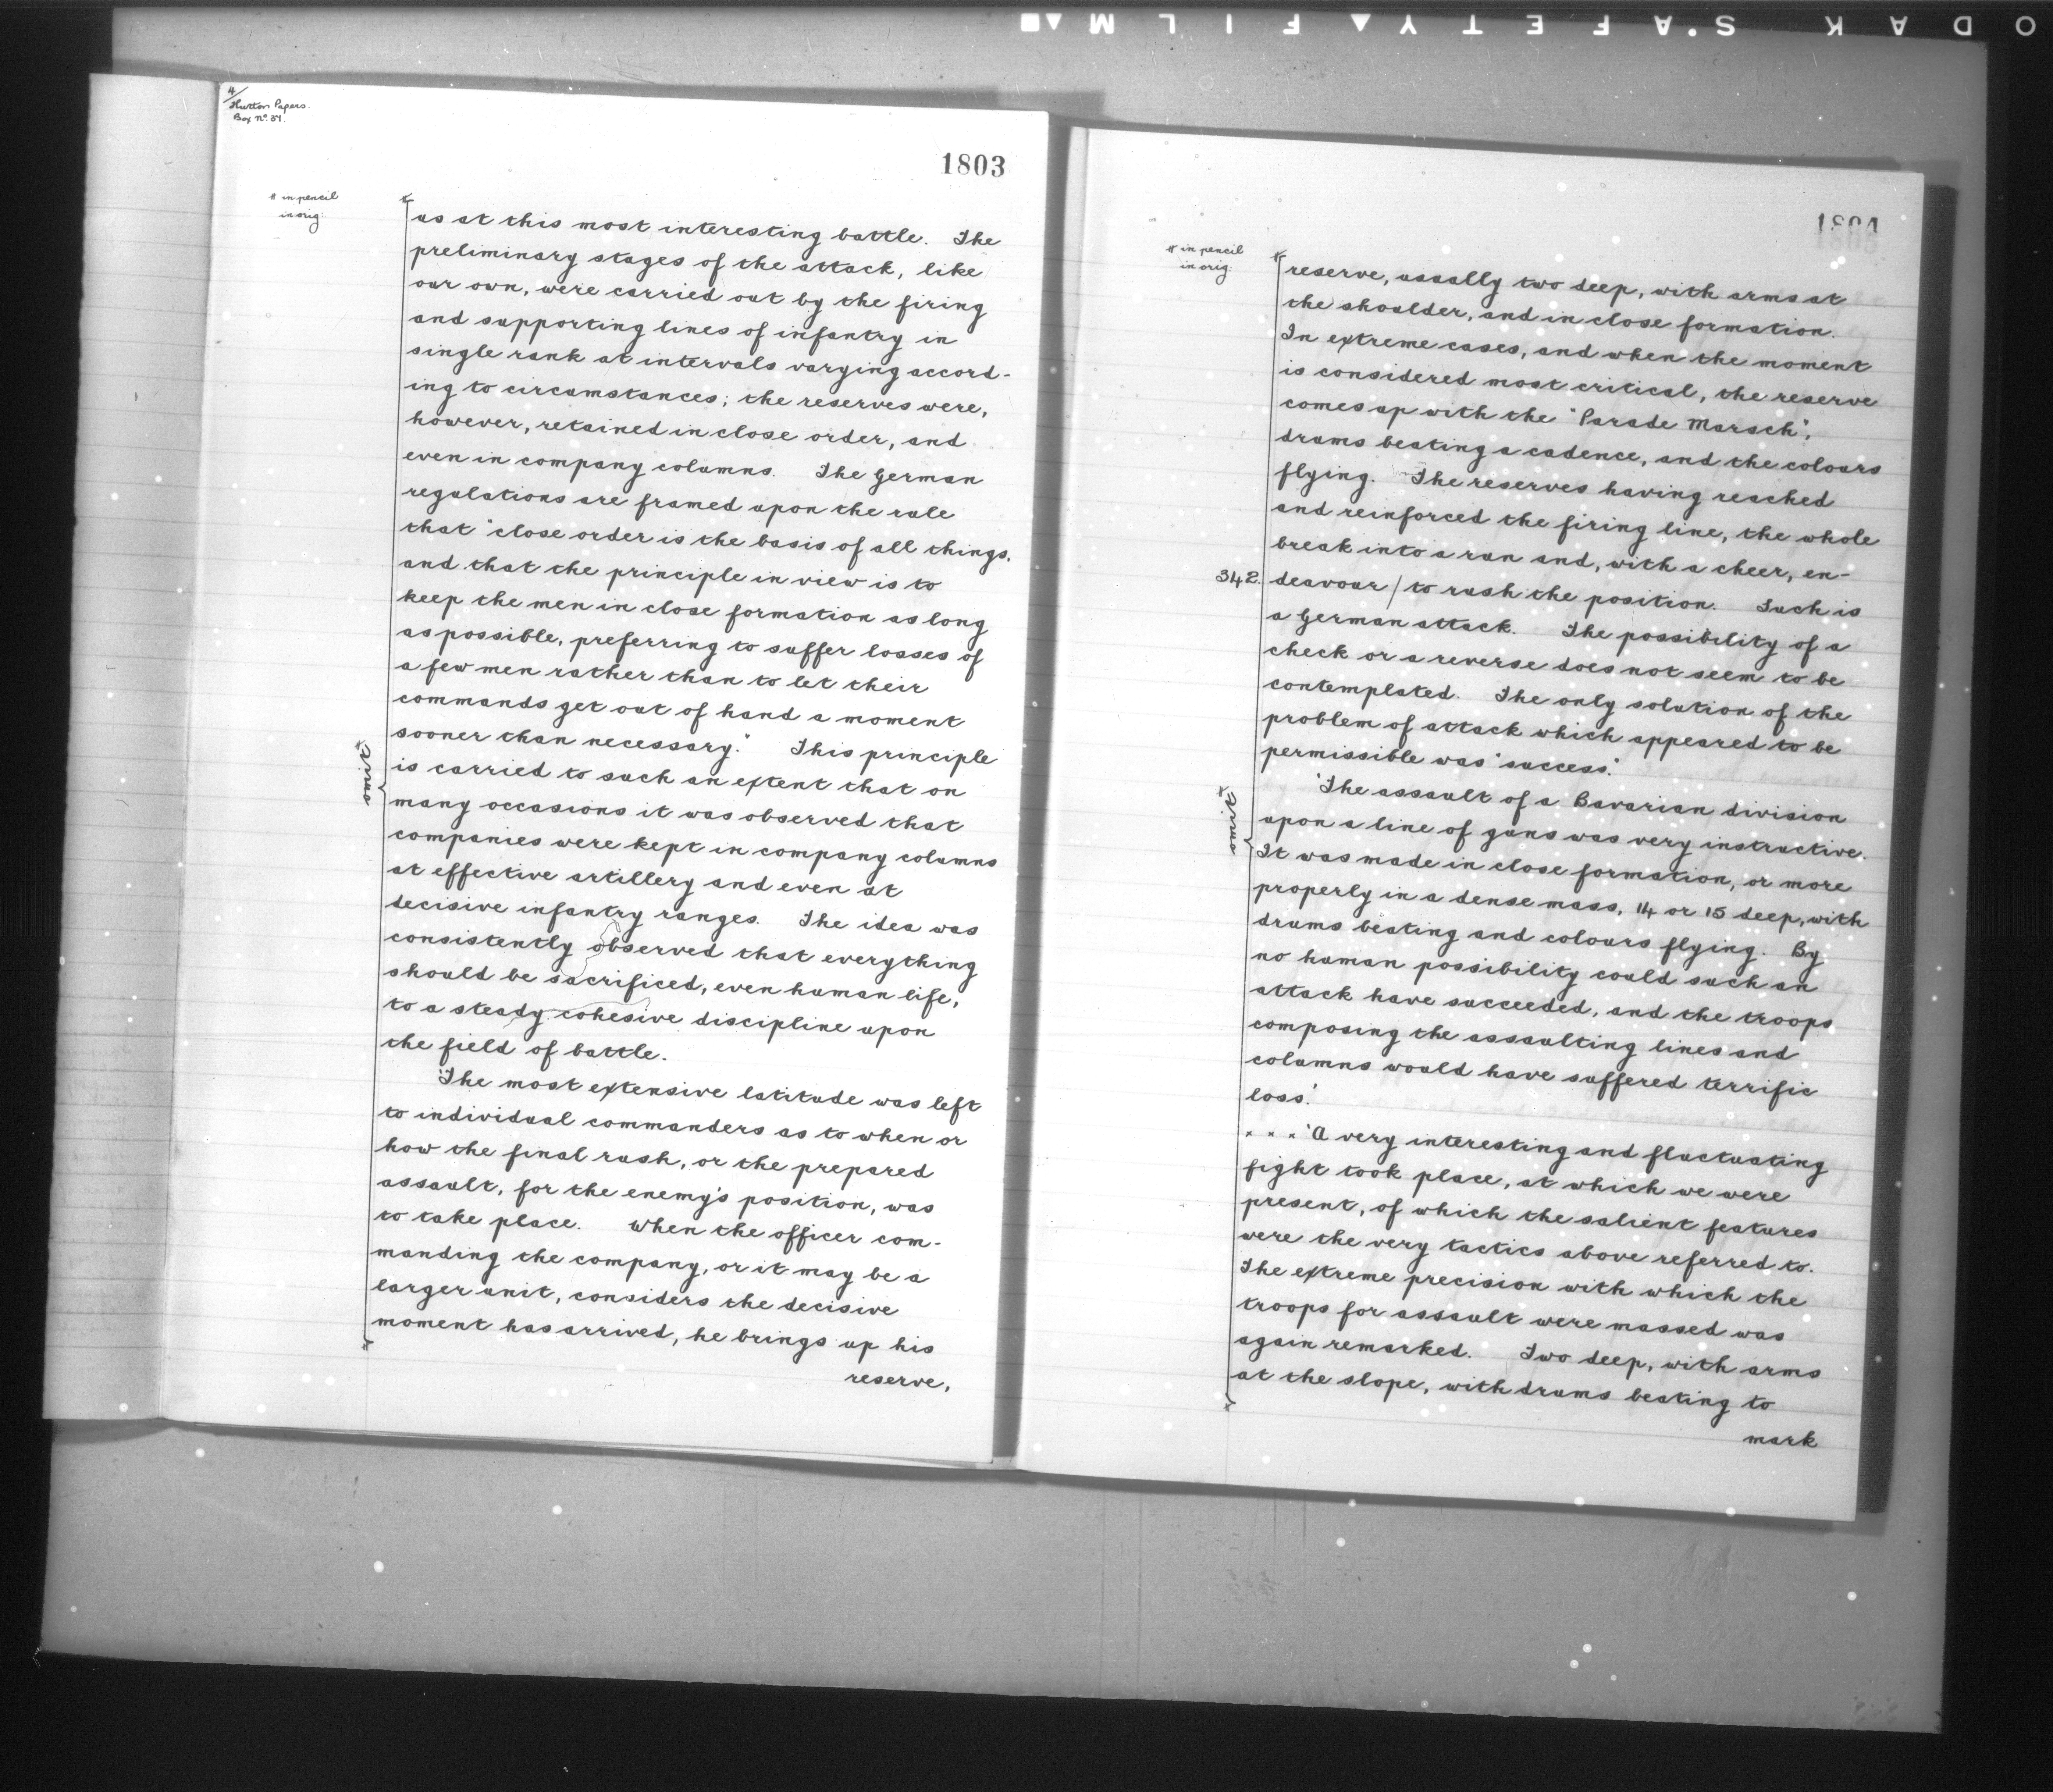 ODAK S'AFETY FILM
4/
Hutton Papers.
Box No. 37.
1803
# in pencil
in orig:
us at this most interesting battle. The
preliminary stages of the attack, like
our own, were carried out by the firing
and supporting lines of infantry in
single rank at intervals varying accord-
ing to circumstances; the reserves were,
however, retained in close order, and
even in company columns. The German
regulations are framed upon the rule
that "close order is the basis of all things,
and that the principle in view is to
keep the men in close formation as long
as possible, preferring to suffer losses of
a few men rather than to let their
commands get out of hand a moment
sooner than necessary." This principle
is carried to such an extent that on
many occasions it was observed that
companies were kept in company columns
at effective artillery and even at
decisive infantry ranges. The idea was
consistently observed that everything
should be sacrificed, even human life,
to a steady cohesive discipline upon
the field of battle.
'The most extensive latitude was left
to individual commanders as to when or
how the final rush, or the prepared
assault, for the enemy's position, was
to take place. When the officer com-
manding the company, or it may be a
larger unit, considers the decisive
moment has arrived, he brings up his
reserve,
1804
# in pencil
in orig:
reserve, usually two deep, with arms at
the shoulder, and in close formation.
In extreme cases, and when the moment
is considered most critical, the reserve
comes up with the "Parade Marsch",
drums beating a cadence, and the colours
flying. The reserves having reached
and reinforced the firing line, the whole
break into a run and, with a cheer, en-
342. deavour / to rush the position. Such is
a German attack. The possibility of a
check or a reverse does not seem to be
contemplated. The only solution of the
problem of attack which appeared to be
permissible was "success".
'The assault of a Bavarian division
upon a line of guns was very instructive.
It was made in close formation, or more
properly in a dense mass, 14 or 15 deep, with
drums beating and colours flying. By
no human possibility could such an
attack have succeeded, and the troops
composing the assaulting lines and
columns would have suffered terrific
loss.'
. . . 'A very interesting and fluctuating
fight took place, at which we were
present, of which the salient features
were the very tactics above referred to.
The extreme precision with which the
troops for assault were massed was
again remarked. Two deep, with arms
at the slope, with drums beating to
mark